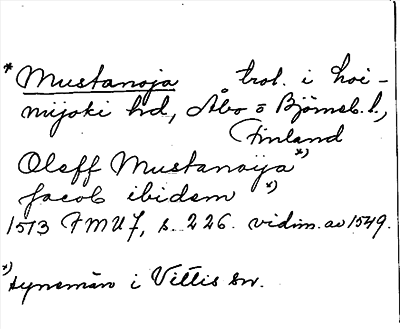 * Mustanoja trol. i Loi-
mijoki hd, Åbo o Björneb. l.,
Finland
Oleff Mustanoija *)
Jacob ibidem *)
1513 FMU 7, s. 226. vidim. av 1549.
*) synemän i Vittis sn.